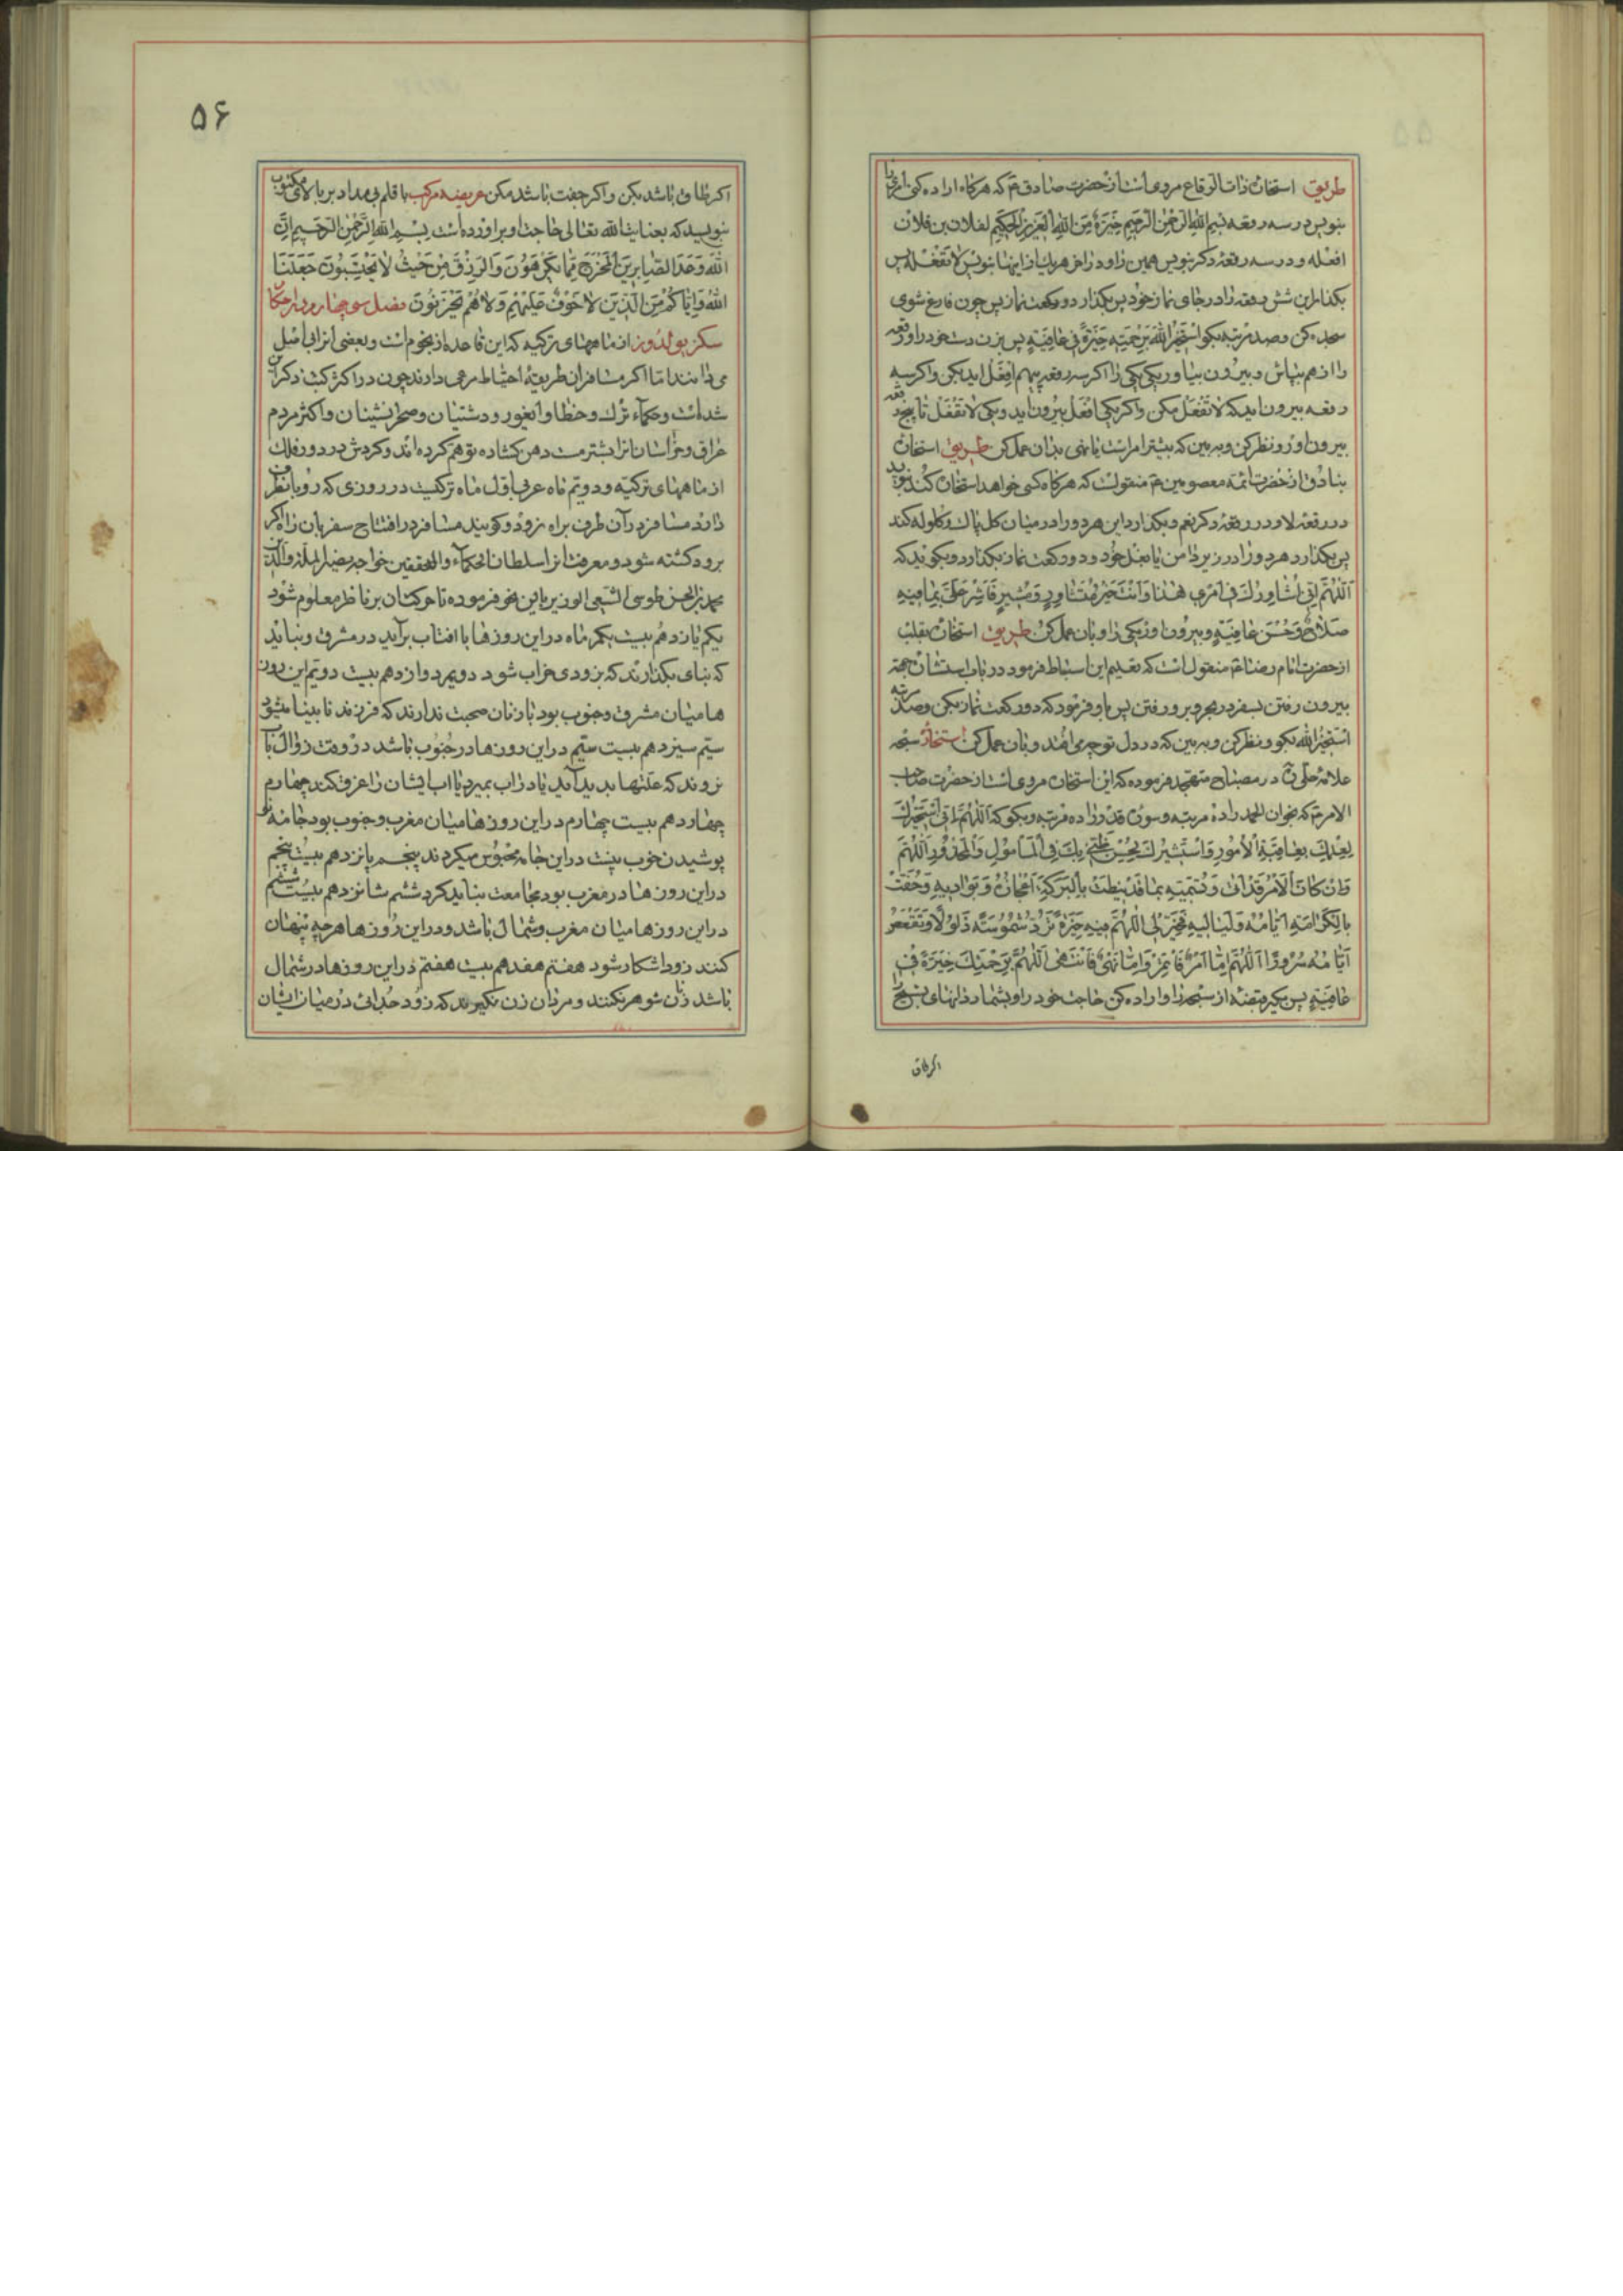 طریق استخاره ذات الرقاع مروی است از حضرت صادق ع که هرگاه اراده کنی امری را
بنویس در سه رقعه بسم الله الرحمن الرحیم خیرة من الله العزیز الحکیم لفلان بن فلان
افعله و در سه رقعه دکر بنویس همین را و در آخر هر یک از اینها بنویس لا تفعله پس
بکذار این شش رقعه را در جای نماز خود پس بکذار دو رکعت نماز پس چون فارغ شوی
سجده کن و صد مرتبه بکو استخیر الله برحمته خیرة فی عافیة پس بزن دست خود را و رقعه
را از هم بپاش و بیرون بیاور یکی یکی را اکر سه رقعه پیهم افعل اید بکن و اکر سه
رقعه بیرون اید که لا تفعل مکن و اکر یکی افعل بیرون اید و یکی لا تفعل تا پنج رقعه
بیرون اور و نظر کن و ببین که بیشتر امر است یا نهی بدان عمل کن طریق استخاره
بنادق از حضرت ائمه معصومین ع منقول است که هرگاه کسی خواهد استخاره کند بنویسد
در رقعه لا و در رقعه دکر نعم و بکذارد این هر دو را در میان کل پاک و کلوله کند
پس بکذارد هر دو را در زیر دامن یا بغل خود و دو رکعت نماز بکذارد و بکوید که
اللهم انی اشاورک فی امری هذا و انت خیر مستشار و مشیر فاشر علی بما فیه
صلاح و حسن عافیة و بیرون اور یکی را و بان عمل کن طریق استخاره بقلب
از حضرت امام رضا ع منقول است که بعلی بن اسباط فرمود در باب استشاره جهة
بیرون رفتن بسفر در بحر و بر و رفتن پس باو فرمود که دو رکعت نماز بکن و صد مرتبه
استخیر الله بکو و نظر کن و ببین که در دل تو چه می افتد و بان عمل کن استخاره سبحه
علامه حلی ره در مصباح متهجد فرموده که این استخاره مروی است از حضرت صاحب
الامر ع که بخوان الحمد را ده مرتبه و سوره قدر را ده مرتبه و بکو که اللهم انی استخیرک
لعلمک بعاقبة الامور و استشیرک لحسن ظنی بک فی المأمول و المحذور اللهم
ان کان الامر قد نیطت بالبرکة اعجازه و بوادیه و حفت
بالکرامة ایامه و لیالیه فخر لی اللهم فیه خیرة ترد شموسه ذلولا و تقعض
ایامه سرورا اللهم اما امر فأتمر و اما نهی فانتهی اللهم برحمتک خیرة فی
عافیة پس بکیر قبضه از سبحه را و اراده کن حاجت خود را و بشمار دانهای تسبیح را
اکر طاق
۵۶
اکر طاق باشد بکن و اکر جفت باشد مکن عریضه مرکب با قلم بی مداد بر بالای مکتوب
بنویسید که بعنایت الله تعالی حاجت او بر اورده است بسم الله الرحمن الرحیم ان
الله وعد الصابرین المخرج مما یکرهون والرزق من حیث لا یحتسبون جعلنا
الله وایاکم من الذین لا خوف علیهم ولا هم یحزنون فصل سی چهارم در احکام
سکز یولدوز از ماههای ترکیه که این قاعده از نجوم است و بعضی انرا بی اصل
می دانند اما اکر مسافران طریقه احتیاط مرعی دارند چون در اکثر کتب ذکر ان
شده است و حکماء ترک و خطا و ایغور و دشتیان و صحرانشینان و اکثر مردم
عراق و خراسان انرا بشتر مست دهن کشاده توهم کرده اند و کردش در دور فلک
از ماههای ترکیه و دویم ماه عربی باول ماه ترکیست در روزی که رو بان طرف
دارد مسافر در آن طرف براه نرود و کویند مسافر در افتتاح سفر بان راه اکر
برود کشته شود و معرفت انرا سلطان الحکماء و المحققین خواجه نصیر الملة و الدین
محمد بن الحسن طوسی الشیعی الوزیر باین نحو فرموده تا حرکت ان بر ناظر معلوم شود
یکم یازدهم بیست یکم ماه در این روزها با افتاب برآید در مشرق و نباید
که بنای بکذارند که بزودی خراب شود دویم دوازدهم بیست دویم این روز
ها میان مشرق و جنوب بود با زنان صحبت ندارند که فرزند نابینا متولد شود
سیم سیزدهم بیست سیم در این روزها در جنوب باشد در وقت زوال باب
نروند که علتها پدید آید یا در اب بمیرد یا اب ایشان را غرق کند چهارم
چهاردهم بیست چهارم در این روزها میان مغرب و جنوب بود جامه نو
پوشیدن خوب نیست در این جامه محبوس میکردند پنجم پانزدهم بیست پنجم
در این روزها در مغرب بود مجامعت نباید کرد ششم شانزدهم بیست ششم
در این روزها میان مغرب و شمال باشد و در این روزها هر چه پنهان
کنند زود اشکار شود هفتم هفدهم بیست هفتم در این روزها در شمال
باشد زنان شوهر نکنند و مردان زن نکیرند که زود جدائی در میان ایشان